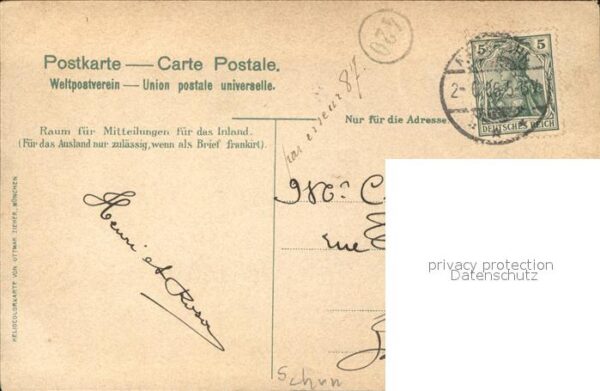 420
Postkarte — Carte Postale.
Weltpostverein — Union postale universelle.
5 5
DEUTSCHES REICH
par erreur 87.
Raum für Mitteilungen für das Inland.
(Für das Ausland nur zulässig, wenn als Brief frankirt).
Nur für die Adresse
HELIOCOLORKARTE VON OTTMAR ZIEHER, MÜNCHEN
Henri et Rosa
rue
privacy protection
Datenschutz